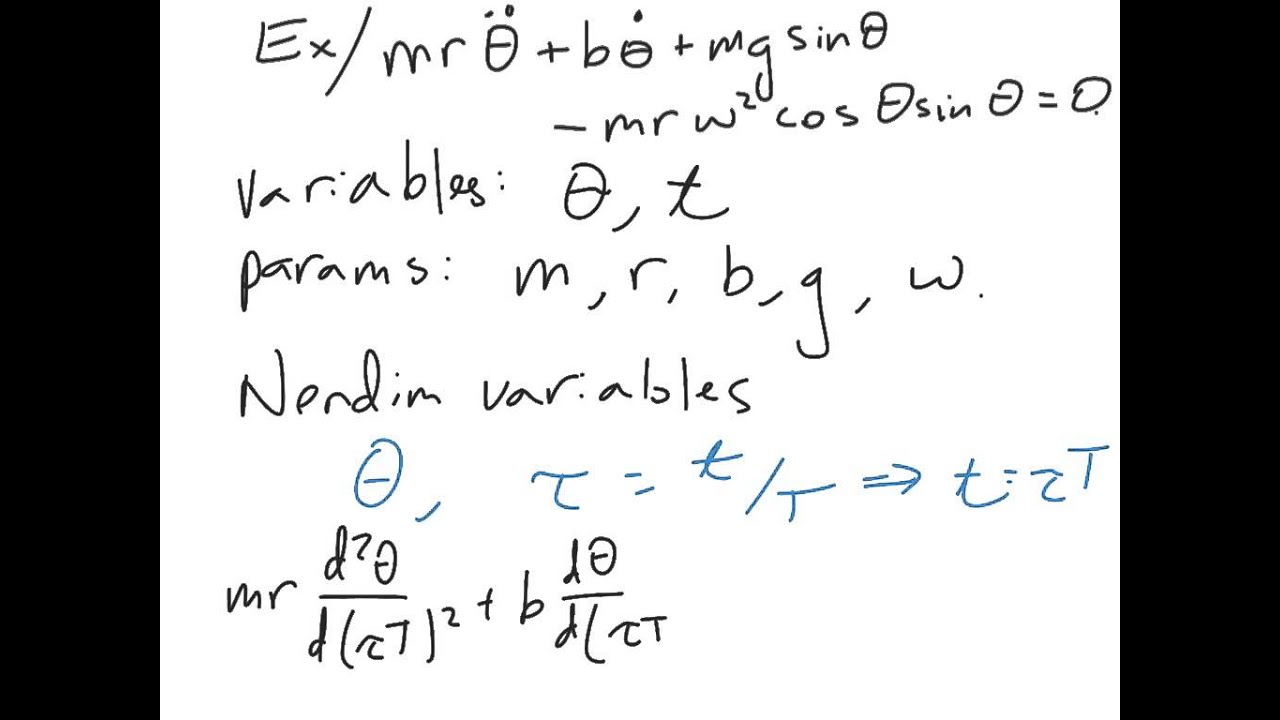 Ex/ mrθ̈ + bθ̇ + mg sin θ
− mrw² cos θ sin θ = 0.
variables: θ, t
params: m, r, b, g, w.
Nondim variables
θ, τ = t/T ⇒ t = τT
mr d²θ/d(τT)² + b dθ/d(τT